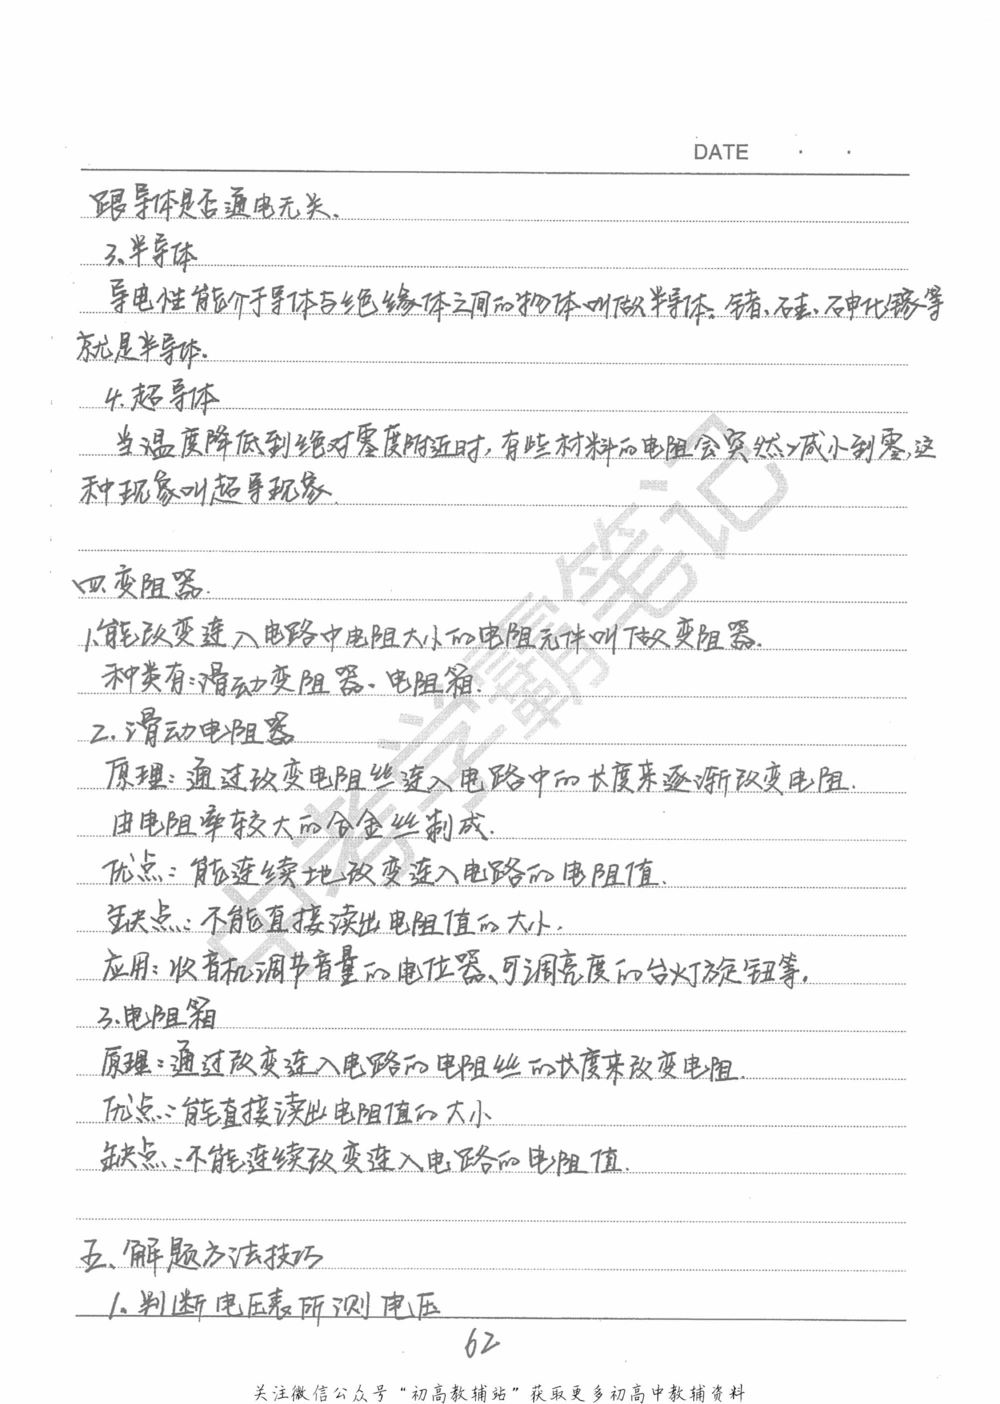 DATE · ·
跟导体是否通电无关.
3.半导体
导电性能介于导体与绝缘体之间的物体叫做半导体。锗、硅、砷化镓等
就是半导体.
4.超导体
当温度降低到绝对零度附近时,有些材料的电阻会突然减小到零,这
种现象叫超导现象.
四.变阻器.
1.能改变连入电路中电阻大小的电阻元件叫做变阻器.
种类有:滑动变阻器、电阻箱.
2.滑动电阻器
原理:通过改变电阻丝连入电路中的长度来逐渐改变电阻.
由电阻率较大的合金丝制成.
优点:能连续地改变连入电路的电阻值.
缺点:不能直接读出电阻值的大小.
应用:收音机调节音量的电位器、可调亮度的台灯旋钮等.
3.电阻箱
原理:通过改变连入电路的电阻丝的长度来改变电阻.
优点:能直接读出电阻值的大小
缺点:不能连续改变连入电路的电阻值.
五、解题方法技巧
1.判断电压表所测电压
62
中考学霸笔记
关注微信公众号“初高教辅站”获取更多初高中教辅资料